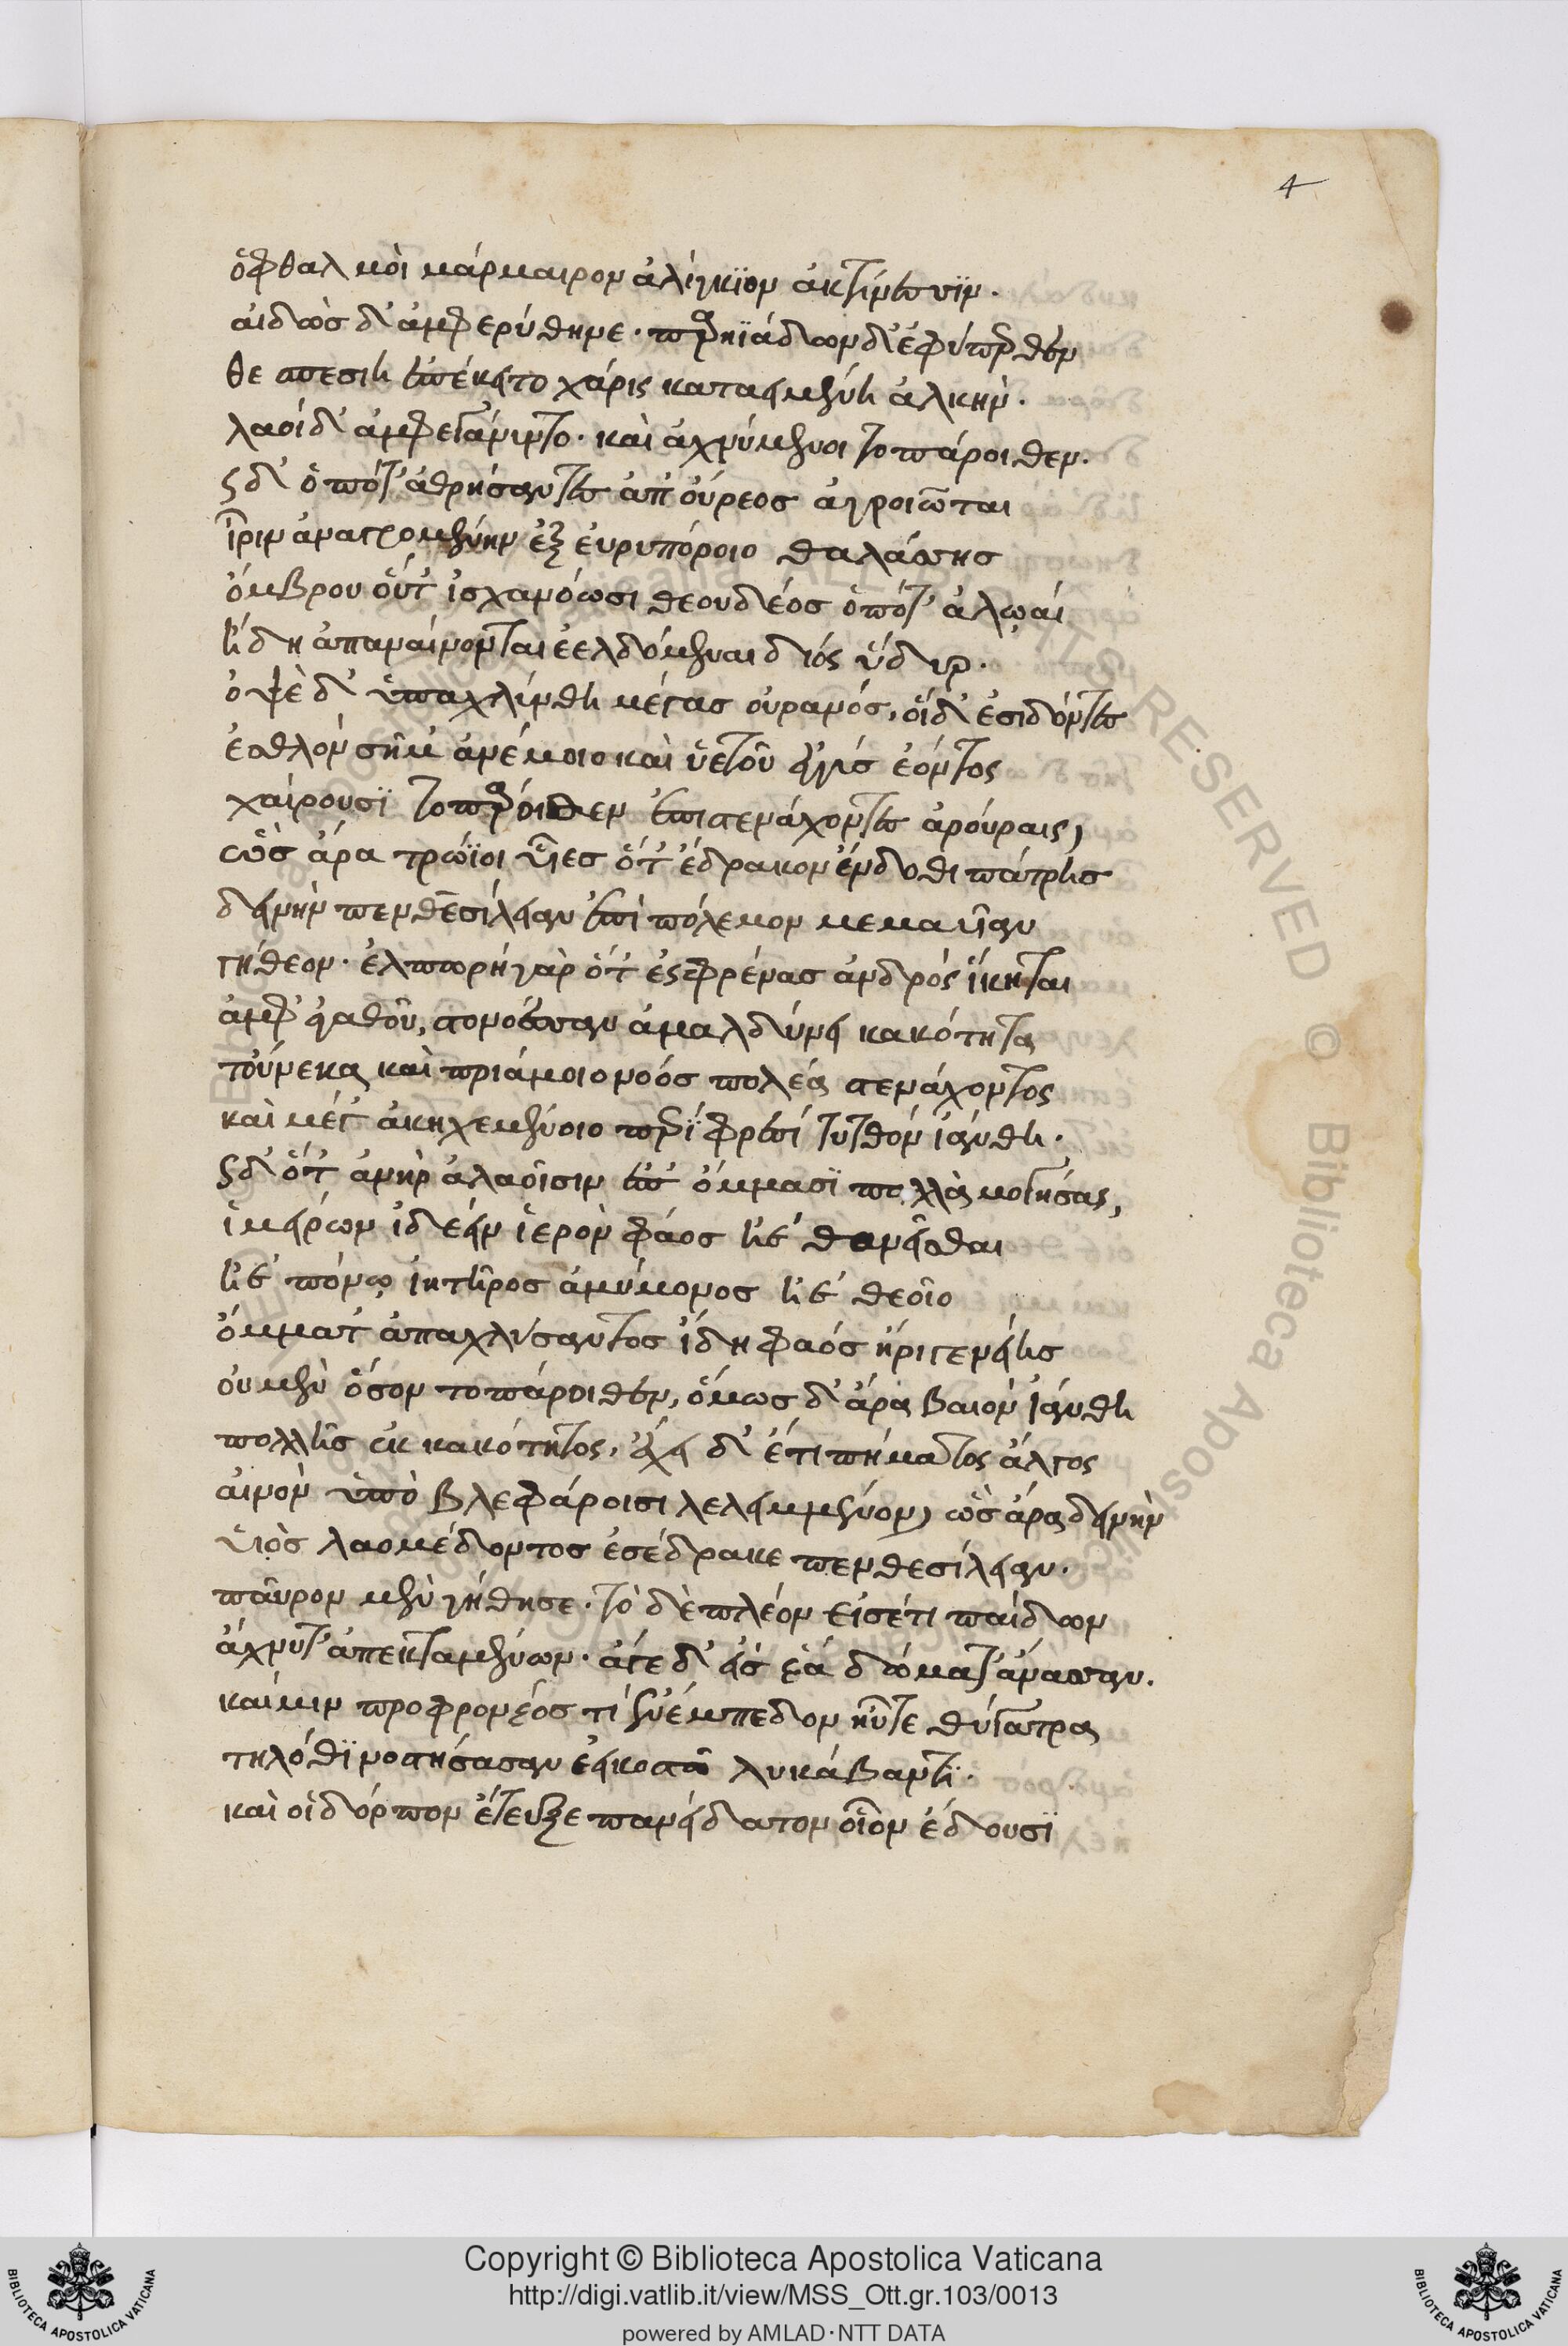 4
ὀφθαλμοὶ μάρμαιρον ἀλίγκϊον ἀκτίνεσσϊν.
αἰδὼς δ' ἀμφερύθηνε. παρηϊάδων δ' ἐφύπερθεν
θεσπεσίη ἐπέκειτο χάρις καταειμένη ἀλκὴν.
λαοὶ δ' ἀμφεγάνυντο. καὶ ἀχνύμενοι τοπάροιθεν.
ὡς δ' ὁπότ' ἀθρήσαντες ἀπ' οὔρεος ἀγροιῶται
ἶριν ἀνεγρομένην ἐξ εὐρυπόροιο θαλάσσης
ὄμβρου ὅτ' ἰσχανόωσι θεουδέος ὁπότ' ἀλωαί
ἤδη ἀπαναίνονται ἐελδόμεναι διός ὕδωρ.
ὀψὲ δ' ὑπαχλύνθη μέγας οὐρανός, οἵδ' ἐσιδόντες
ἐσθλὸν σῆμ' ἀνέμοιο καὶ ὑετοῦ ἐγγὺς ἐόντος
χαίρουσϊ τοπάροιθεν ἐπιστενάχοντες ἀρούραις,
ὣς ἄρα τρώϊοι υἷες ὅτ' ἔδρακον ἔνδοθι πάτρης
δεινὴν πενθεσίλειαν ἐπὶ πόλεμον μεμαυῖαν
γήθεον. ἐλπωρὴ γὰρ ὅτ' ἐς φρένας ἀνδρός ἵκηται
ἀμφ' ἀγαθοῦ, στονόεσσαν ἀμαλδύνει κακότητα
τοὔνεκα καὶ πριάμοιο νοός πολέα στενάχοντος
καὶ μέγ' ἀκηχεμένοιο περϊ φρεσί τυτθόν ἰάνθη.
ὡς δ' ὅτ' ἀνὴρ ἀλαοῖσιν ἐπ' ὄμμασϊ πολλὰ μογήσας,
ἱμείρων ἰδέειν ἱερὸν φάος ἠὲ θανεῖσθαι
ἠὲ πόνῳ ἰητῆρος ἀμύμονος ἠὲ θεοῖο
ὄμματ' ἀπαχλύσαντος ἴδῃ φαός ἠριγενείης
οὐ μὲν ὅσον τοπάροιθεν, ὅμως δ' ἄρα βαιὸν ἰάνθη
πολλῆς ἐκ κακότητος, ἔχει δ' ἔτι πήματος ἄλγος
αἰνὸν ὑπὸ βλεφάροισι λελειμμένον, ὣς ἄρα δεινὴν
υἱὸς λαομέδοντος ἐσέδρακε πενθεσίλειαν.
παῦρον μὲν γήθησε. τὸ δὲ πλέον εἰσέτι παίδων
ἄχνυτ' ἀπεκταμένων. ἄγε δ' εἰς ἑὰ δώματ' ἄνασσαν.
καί μιν προφρονέος τίεν ἔμπεδον ἠΰτε θύγατρα
τηλόθϊ νοστήσασαν ἐεικοστῶ λυκάβαντϊ.
καὶ οἱ δόρπον ἔτευξε πανείδατον οἷον ἔδουσϊ
Copyright © Biblioteca Apostolica Vaticana
http://digi.vatlib.it/view/MSS_Ott.gr.103/0013
powered by AMLAD·NTT DATA